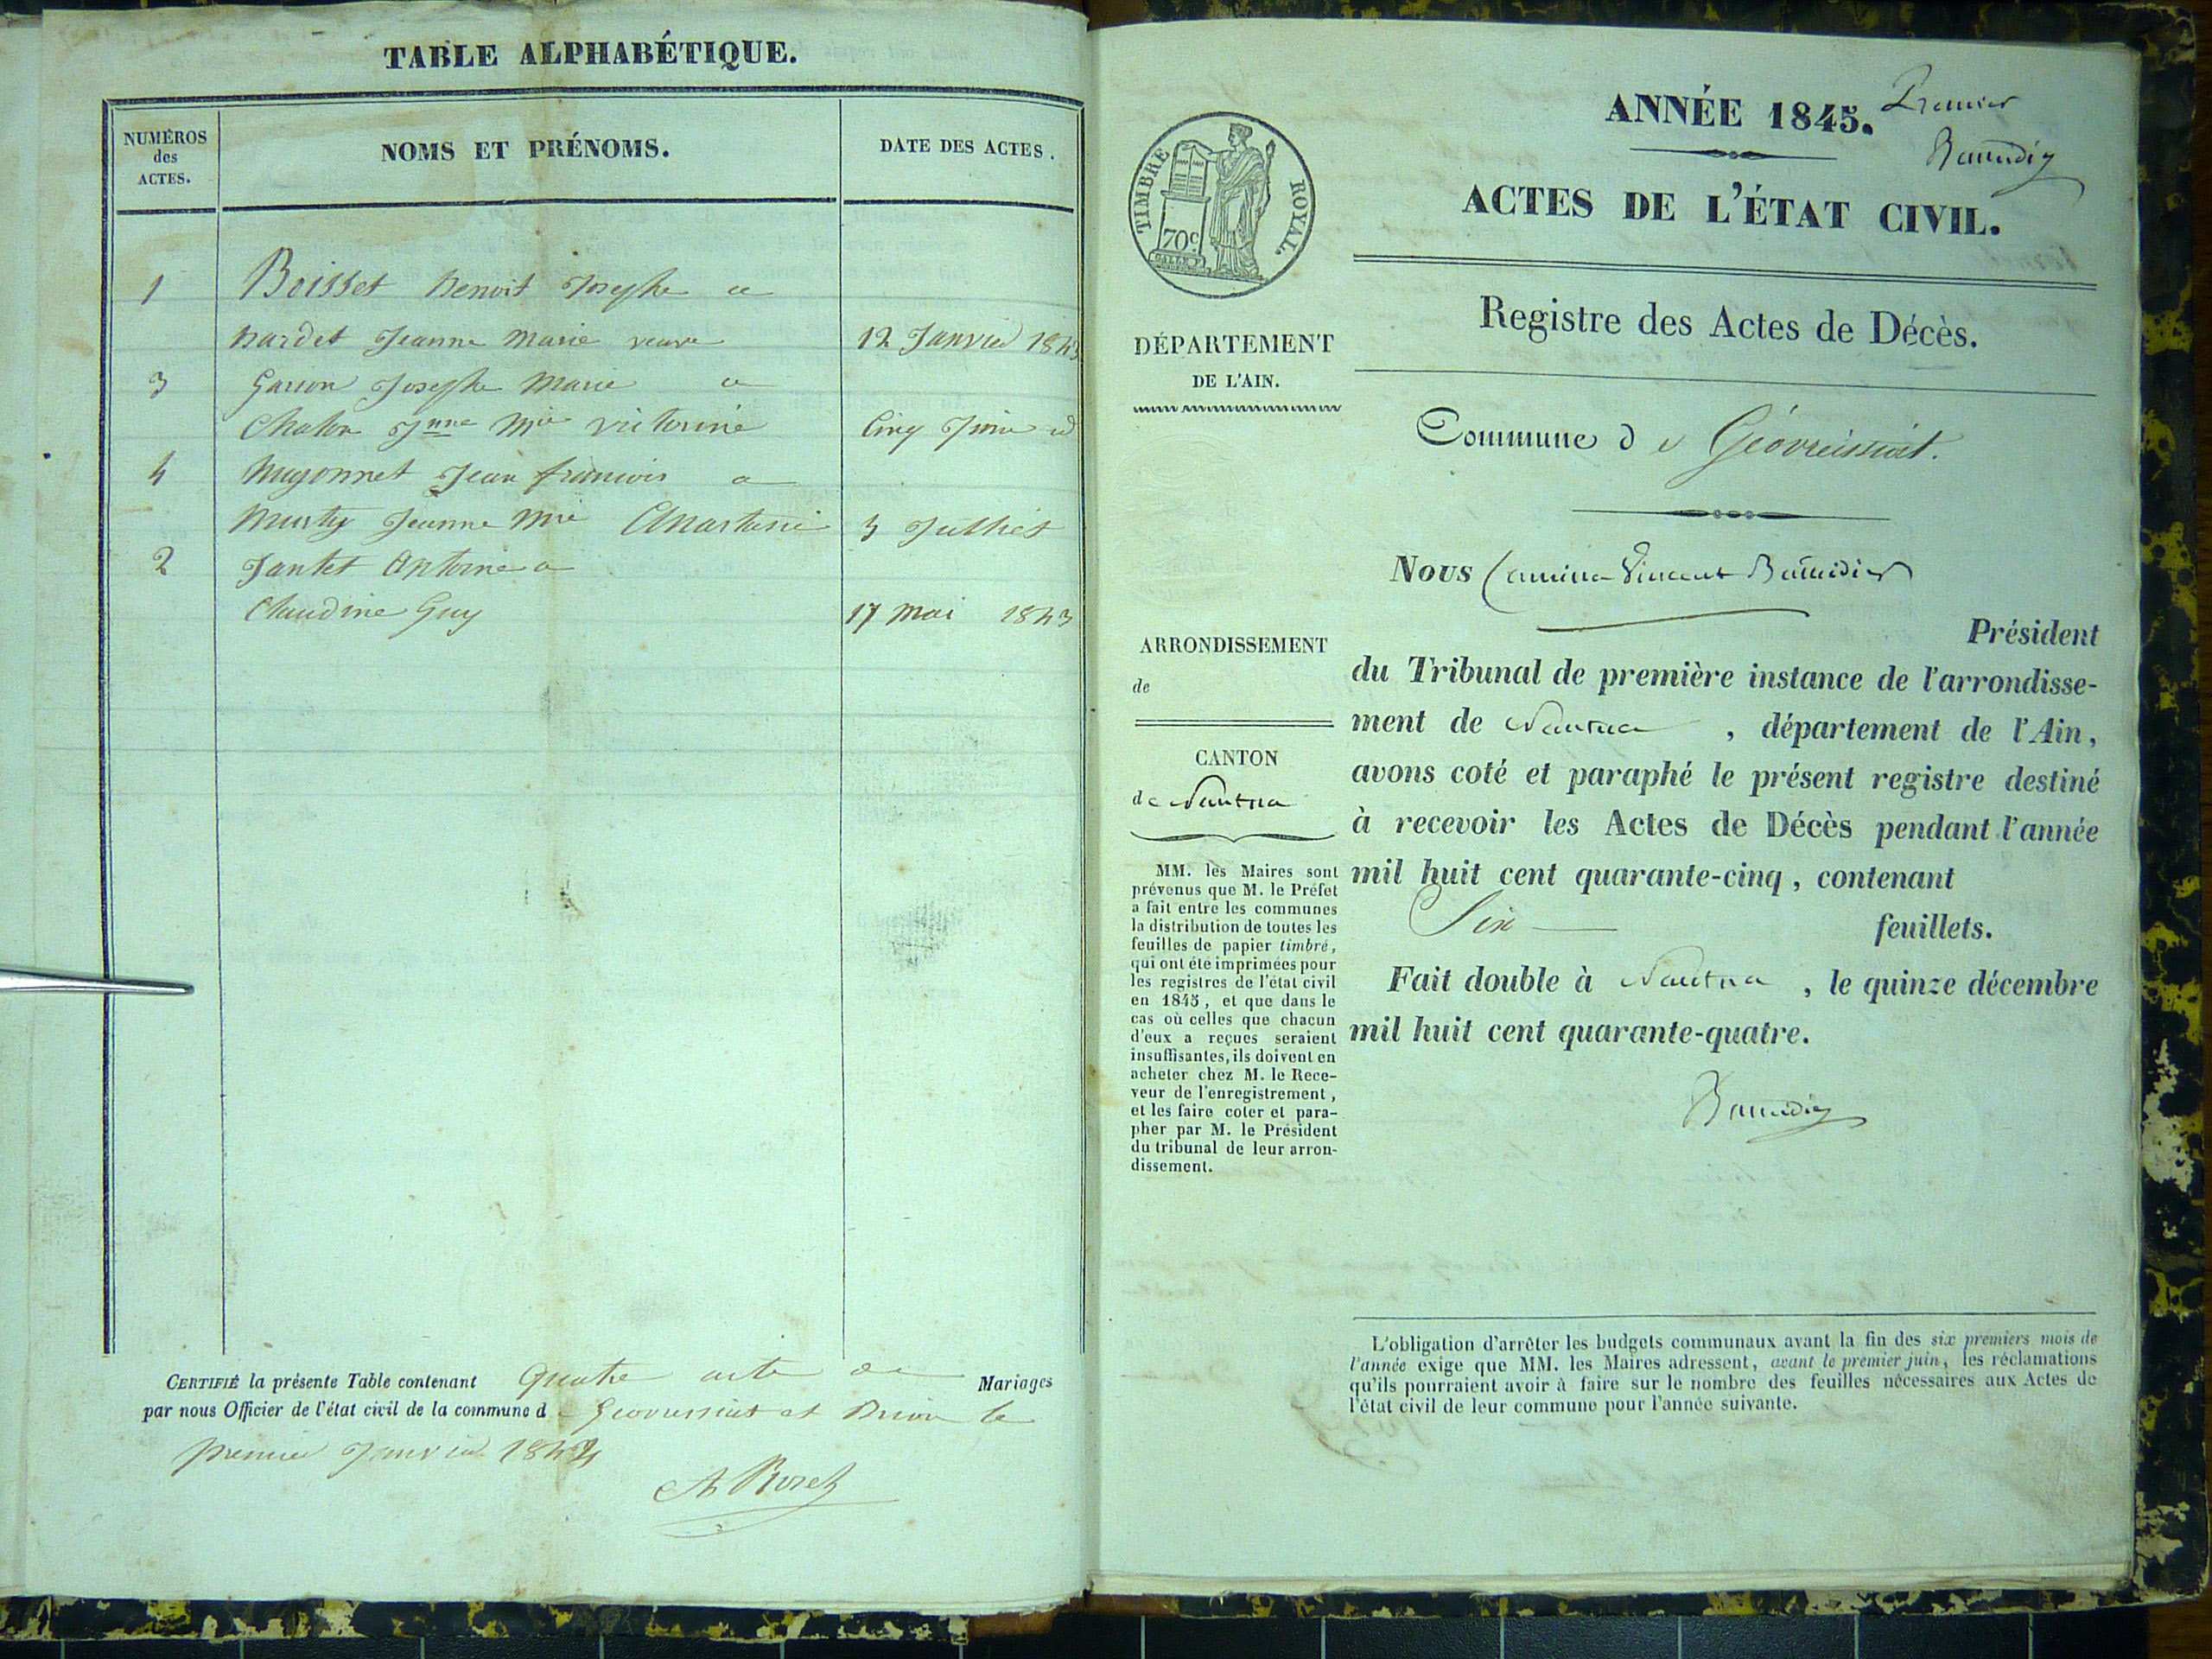 TABLE ALPHABÉTIQUE.
NUMÉROS
des
ACTES.
NOMS ET PRÉNOMS.
DATE DES ACTES.
1 Boisset Benoit Josephe a
Jeanne Marie veuve 12 Janvier 1843
3 Josephe Marie a
Chalon Jnne Mie victorine Cinq Juin id
4 Jean francois a
Jeanne Mie 3 Julliet
2 Jantet Antoine a
Claudine Guy 17 mai 1843
CERTIFIÉ la présente Table contenant Quatre acte de Mariages
par nous Officier de l'état civil de la commune d e Geovressiat et le
premier Janvier 1844
ANNÉE 1845. Premier
ACTES DE L'ÉTAT CIVIL.
TIMBRE ROYAL.
70c
Registre des Actes de Décès.
DÉPARTEMENT
DE L'AIN.
Commune d e Géovreissiat.
Nous Vincent
Président
du Tribunal de première instance de l'arrondisse-
ment de Nantua, département de l'Ain,
avons coté et paraphé le présent registre destiné
à recevoir les Actes de Décès pendant l'année
mil huit cent quarante-cinq, contenant
Six feuillets.
Fait double à Nantua, le quinze décembre
mil huit cent quarante-quatre.
ARRONDISSEMENT
de
CANTON
de Nantua
MM. les Maires sont
prévenus que M. le Préfet
a fait entre les communes
la distribution de toutes les
feuilles de papier timbré,
qui ont été imprimées pour
les registres de l'état civil
en 1845, et que dans le
cas où celles que chacun
d'eux a reçues seraient
insuffisantes, ils doivent en
acheter chez M. le Rece-
veur de l'enregistrement,
et les faire coter et para-
pher par M. le Président
du tribunal de leur arron-
dissement.
L'obligation d'arrêter les budgets communaux avant la fin des six premiers mois de
l'année exige que MM. les Maires adressent, avant le premier juin, les réclamations
qu'ils pourraient avoir à faire sur le nombre des feuilles nécessaires aux Actes de
l'état civil de leur commune pour l'année suivante.